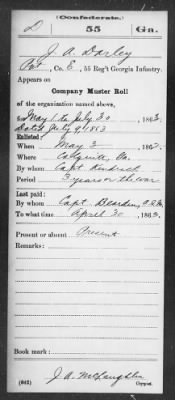 (Confederate.)
D 55 Ga.
J. A. Darley
Pvt, Co. E, 55 Reg't Georgia Infantry.
Appears on
Company Muster Roll
of the organization named above,
for May 1 to July 30, 1863.
Dated July 9, 1863
Enlisted:
When May 3, 186
Where Colquitt, Ga.
By whom Capt.
Period 3 years or the war
Last paid:
By whom Capt. Bearden,
To what time April 30, 1863.
Present or absent Present
Remarks:
Book mark:
J. A. McLaughlin
(642) Copyist.